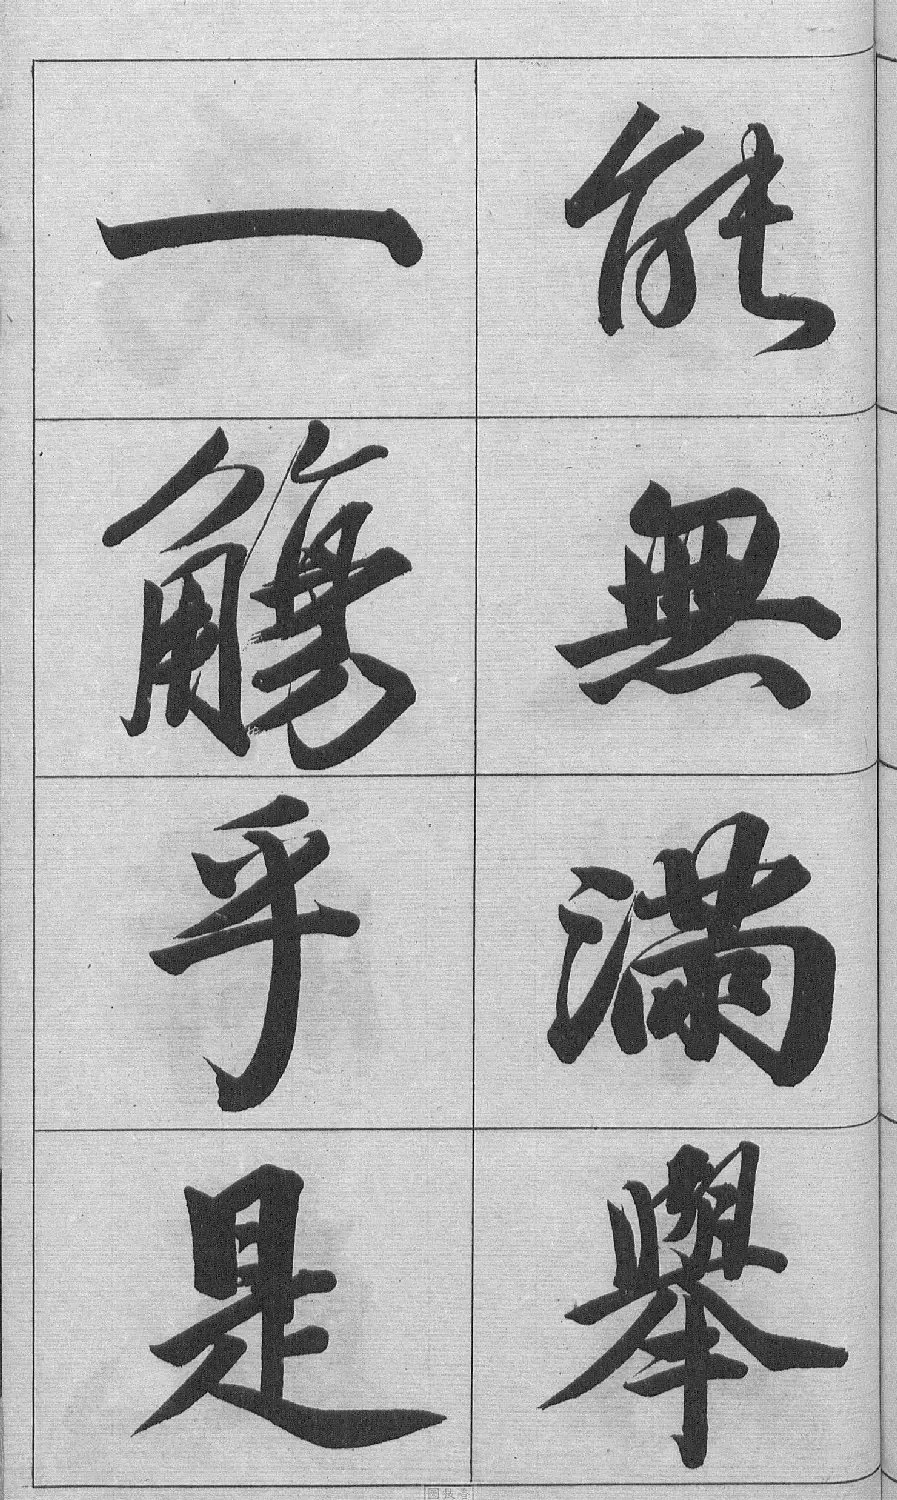 能無滿舉
一觴乎是